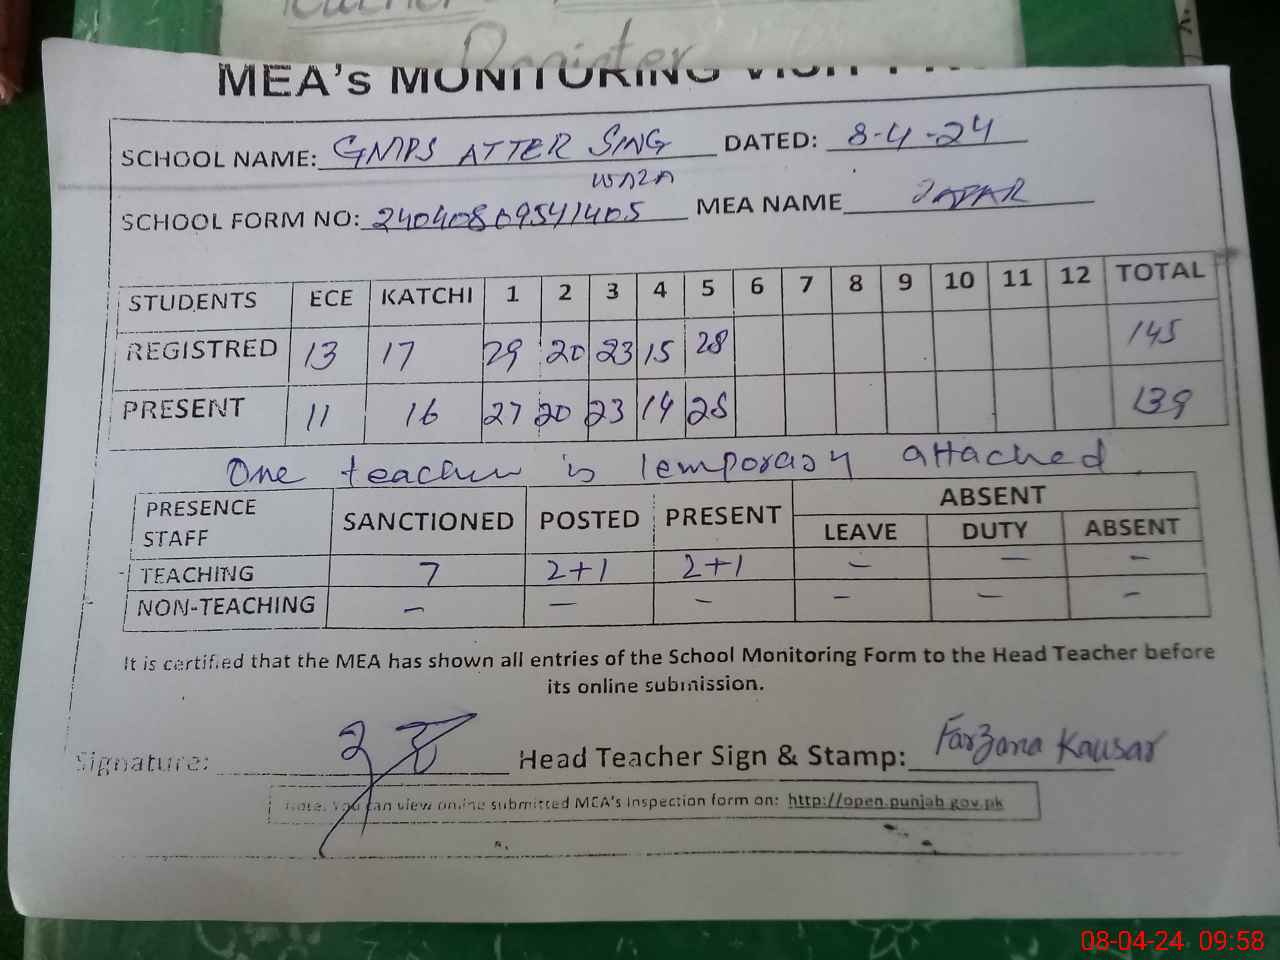 Teacher
Register
MEA's MONITORING VISIT
SCHOOL NAME: GMPS ATTER SING DATED: 8-4-24
WALA
SCHOOL FORM NO: 24040809541405 MEA NAME JAFAR
STUDENTS ECE KATCHI 1 2 3 4 5 6 7 8 9 10 11 12 TOTAL
REGISTRED 13 17 29 20 23 15 28 145
PRESENT 11 16 27 20 23 14 28 139
One teacher is temporary attached
PRESENCE STAFF SANCTIONED POSTED PRESENT ABSENT
LEAVE DUTY ABSENT
TEACHING 7 2+1 2+1 - - -
NON-TEACHING - - - - - -
It is certified that the MEA has shown all entries of the School Monitoring Form to the Head Teacher before
its online submission.
Signature: Head Teacher Sign & Stamp: Farzana Kausar
Note: You can view online submitted MEA's Inspection form on: http://open.punjab.gov.pk
08-04-24 09:58